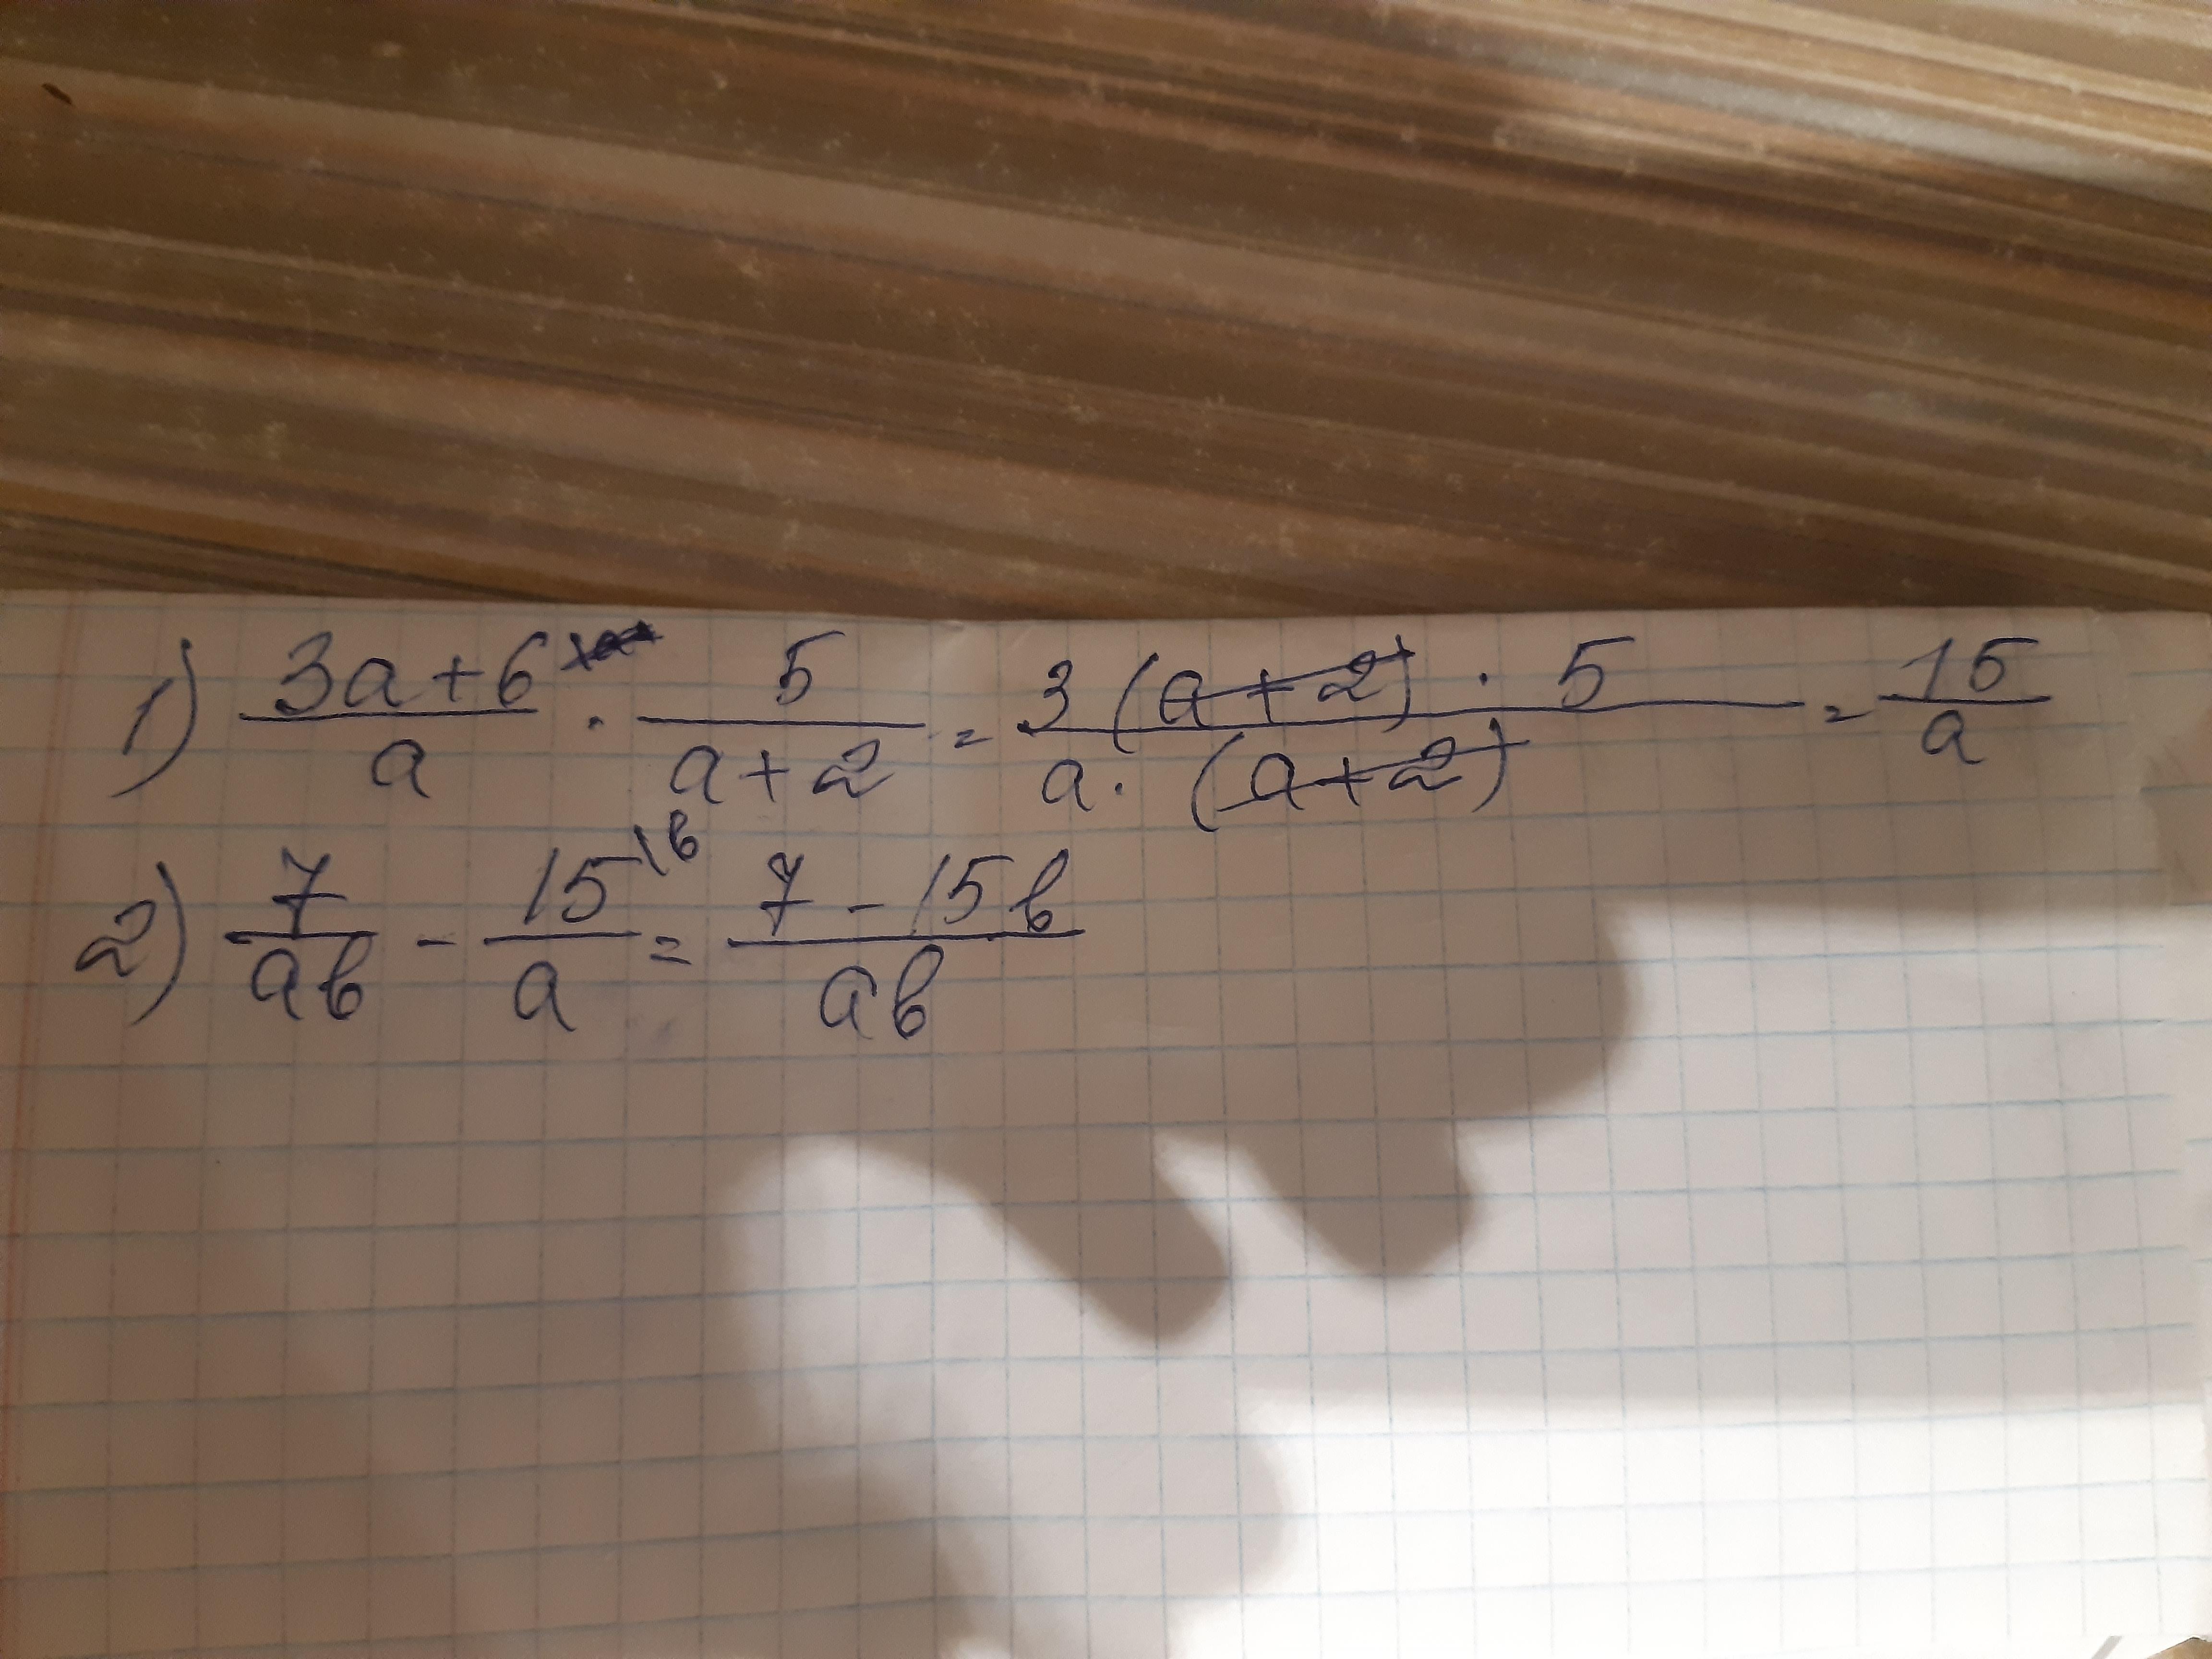 1) (3a+6)/a · 5/(a+2) = (3(a+2) · 5)/(a · (a+2)) = 15/a
2) 7/ab - 15/a \b = (7 - 15b)/ab